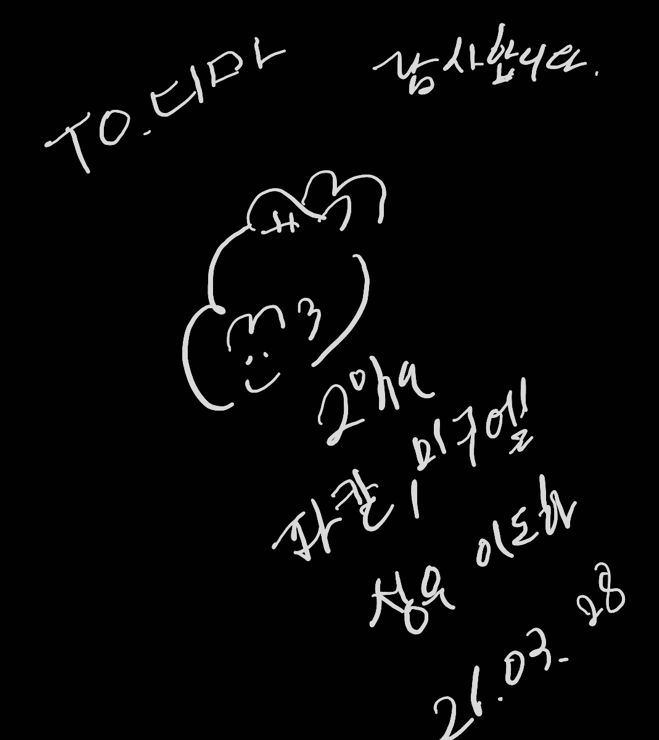 TO. 디마
감사합니다.
파칼, 미구엘
성우 이도하
21.03.28